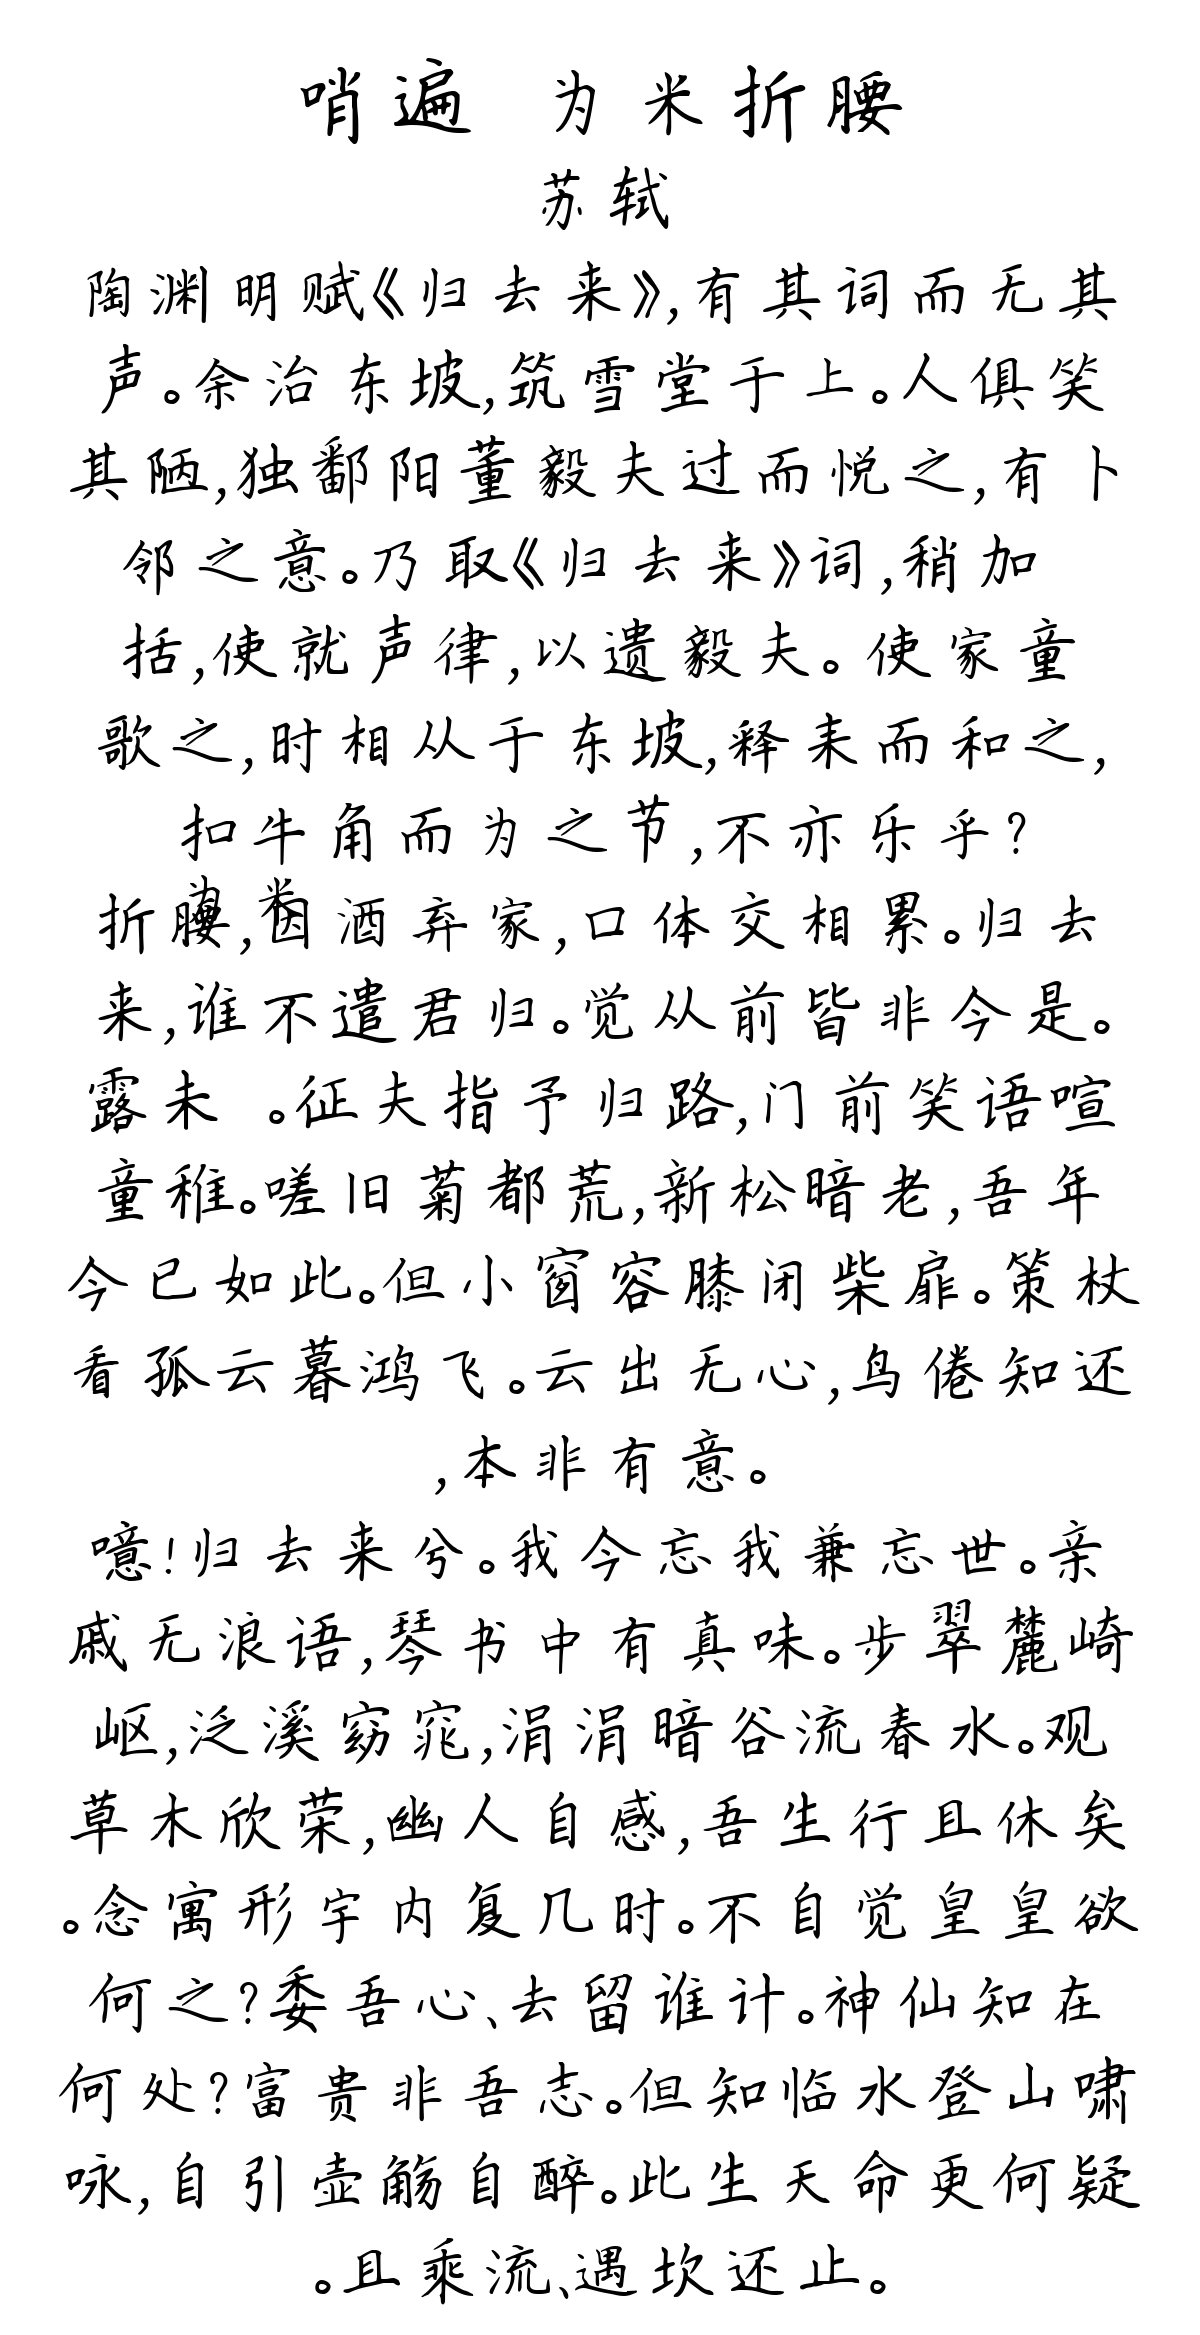 哨遍 为米折腰
苏轼
陶渊明赋《归去来》,有其词而无其
声。余治东坡,筑雪堂于上。人俱笑
其陋,独鄱阳董毅夫过而悦之,有卜
邻之意。乃取《归去来》词,稍加
括,使就声律,以遗毅夫。使家童
歌之,时相从于东坡,释耒而和之,
扣牛角而为之节,不亦乐乎?
为米
折腰,因酒弃家,口体交相累。归去
来,谁不遣君归。觉从前皆非今是。
露未 。征夫指予归路,门前笑语喧
童稚。嗟旧菊都荒,新松暗老,吾年
今已如此。但小窗容膝闭柴扉。策杖
看孤云暮鸿飞。云出无心,鸟倦知还
,本非有意。
噫!归去来兮。我今忘我兼忘世。亲
戚无浪语,琴书中有真味。步翠麓崎
岖,泛溪窈窕,涓涓暗谷流春水。观
草木欣荣,幽人自感,吾生行且休矣
。念寓形宇内复几时。不自觉皇皇欲
何之?委吾心、去留谁计。神仙知在
何处?富贵非吾志。但知临水登山啸
咏,自引壶觞自醉。此生天命更何疑
。且乘流、遇坎还止。